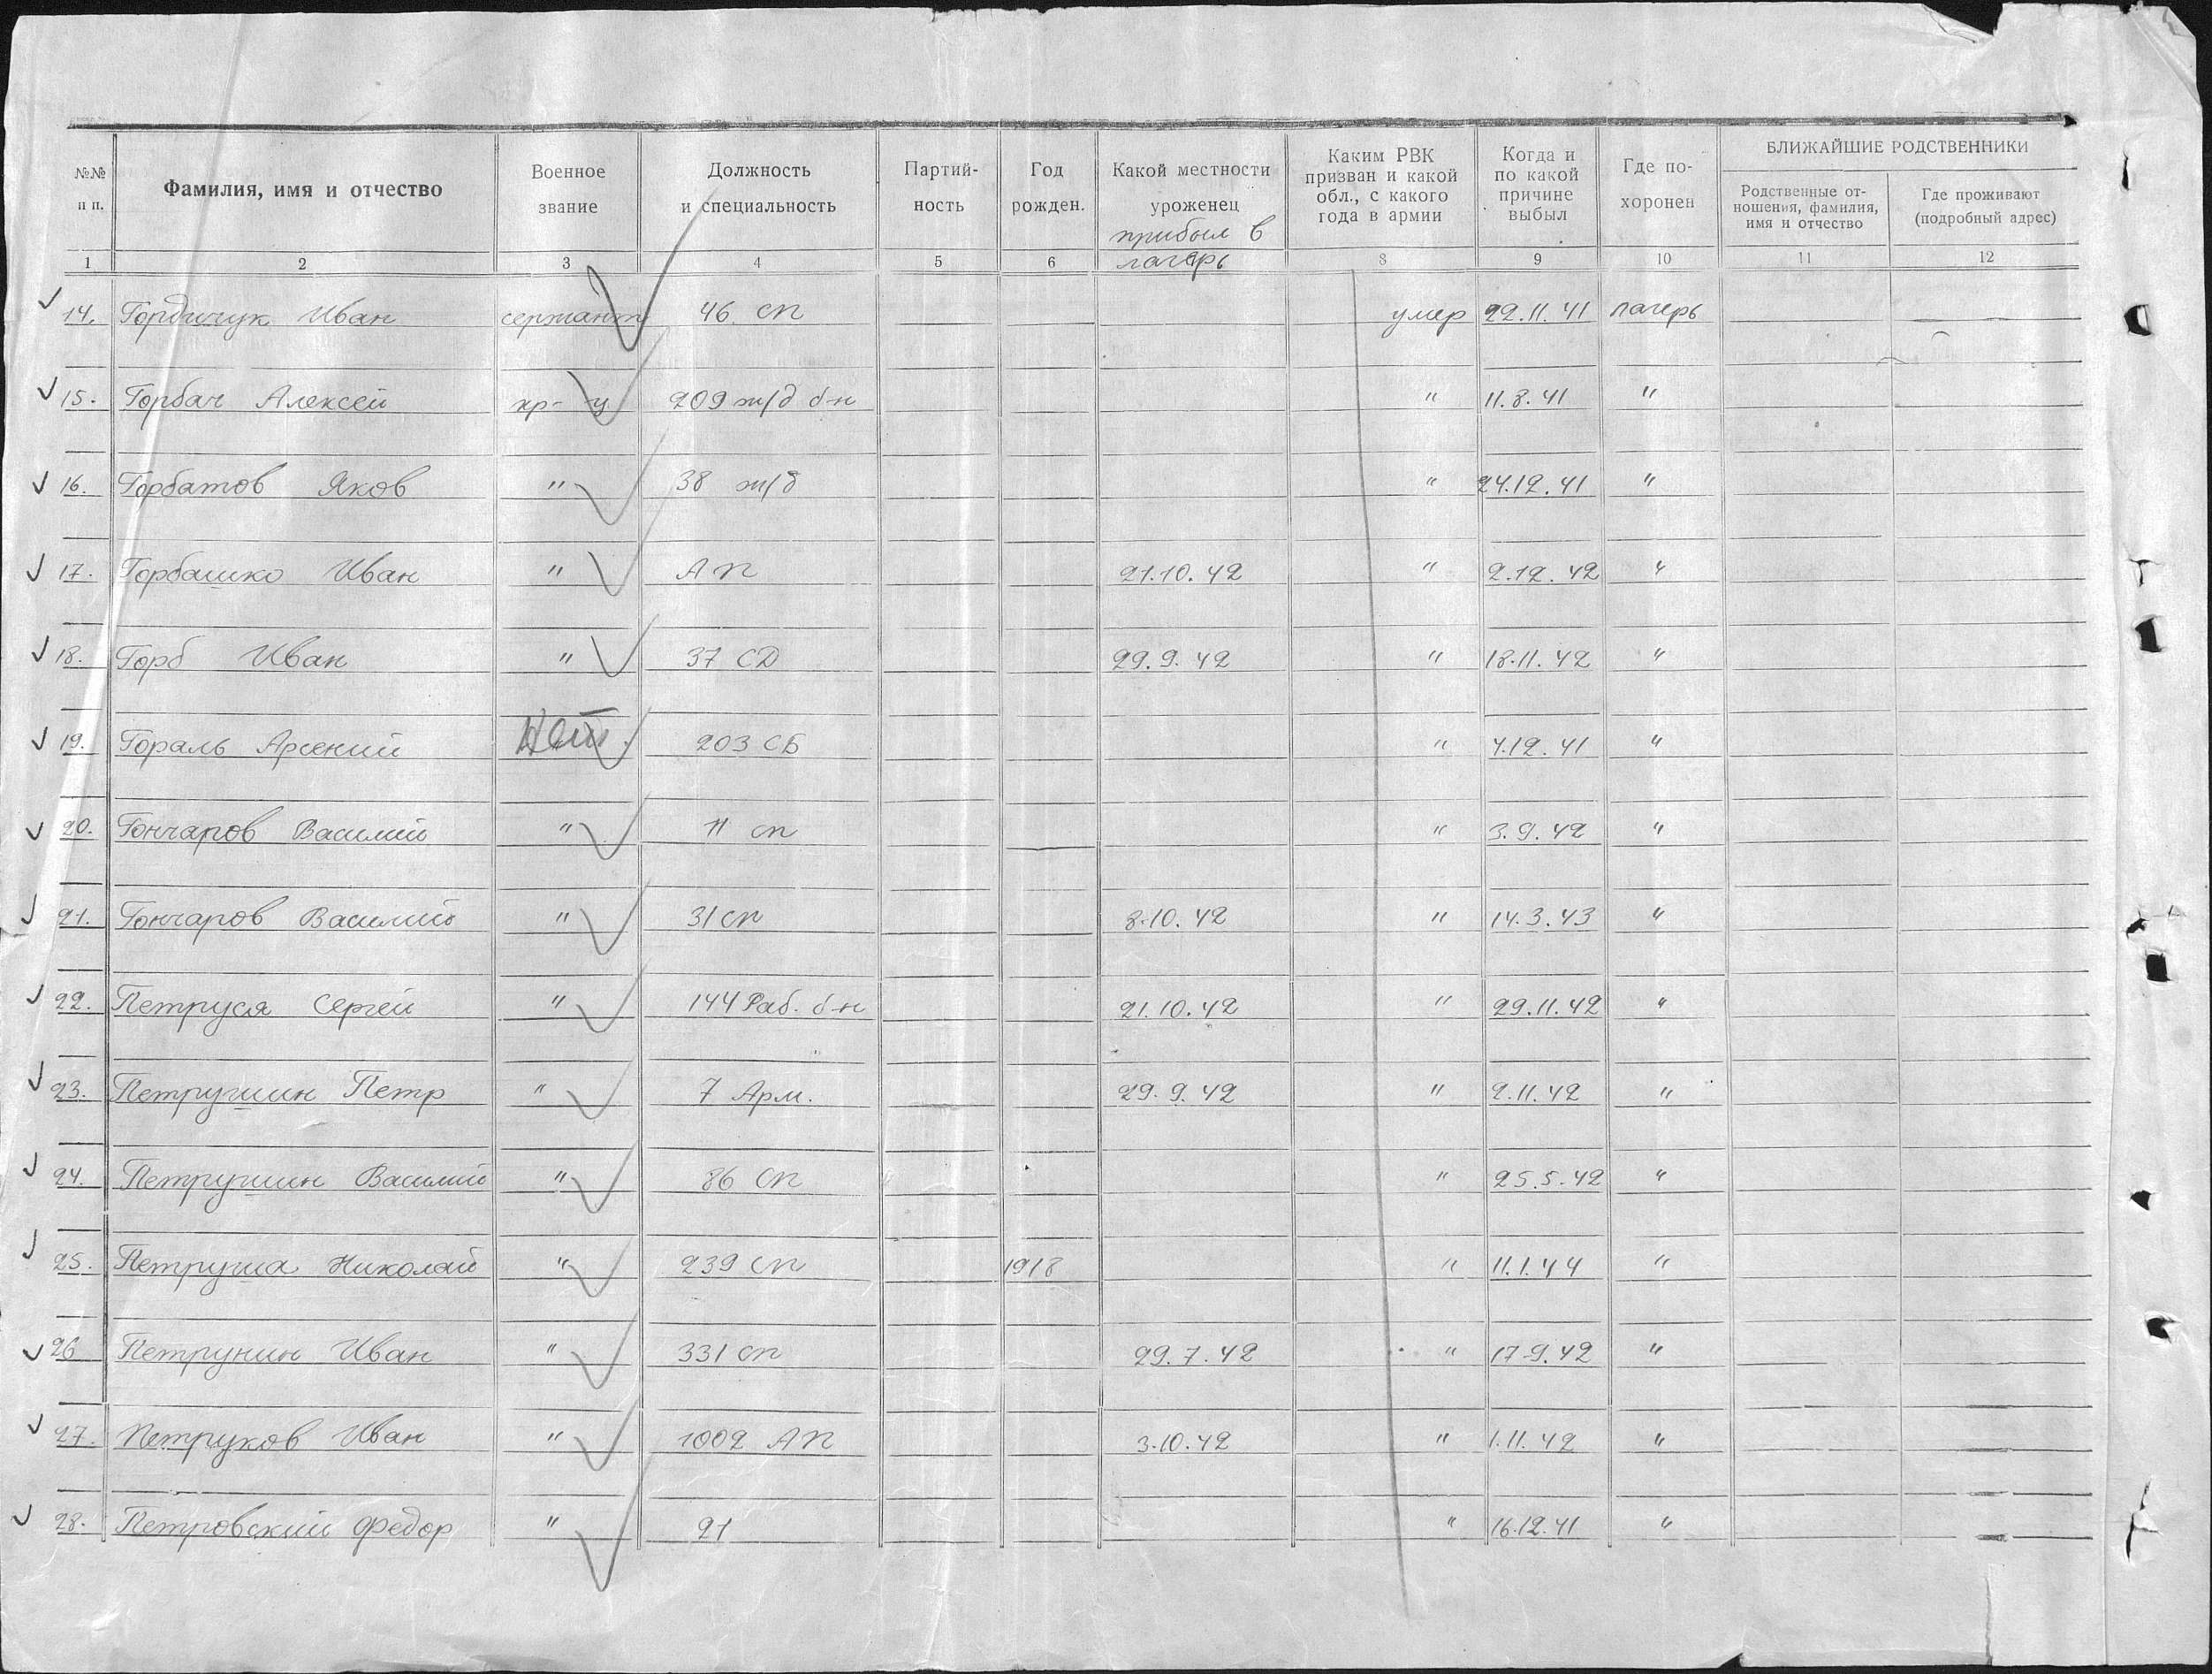 №№ п п.
Фамилия, имя и отчество
Военное звание
Должность и специальность
Партий-ность
Год рожден.
Какой местности уроженец
прибыл в лагерь
Каким РВК призван и какой обл., с какого года в армии
Когда и по какой причине выбыл
Где по-хоронен
БЛИЖАЙШИЕ РОДСТВЕННИКИ
Родственные от-ношения, фамилия, имя и отчество
Где проживают (подробный адрес)
1 2 3 4 5 6 8 9 10 11 12
14. Гордичук Иван сержант 46 сп умер 22.11.41 лагерь
15. Горбач Алексей кр-ц 209 ж/д б-н " 11.8.41 "
16. Горбатов Яков " 38 ж/д " 24.12.41 "
17. Горбашко Иван " АП 21.10.42 " 2.12.42 "
18. Горб Иван " 37 СД 29.9.42 " 18.11.42 "
19. Гораль Арсений 203 СБ " 4.12.41 "
20. Гончаров Василий " 11 сп " 3.9.42 "
21. Гончаров Василий " 31 сп 8.10.42 " 14.3.43 "
22. Петруся Сергей " 144 Раб. б-н 21.10.42 " 29.11.42 "
23. Петрушин Петр " 7 Арм. 29.9.42 " 2.11.42 "
24. Петрушин Василий " 86 сп " 25.5.42 "
25. Петруша Николай " 239 сп 1918 " 11.1.44 "
26 Петрунин Иван " 331 сп 29.7.42 " 17.9.42 "
27. Петруков Иван " 1002 АП 3.10.42 " 1.11.42 "
28. Петровский Федор " 21 " 16.12.41 "